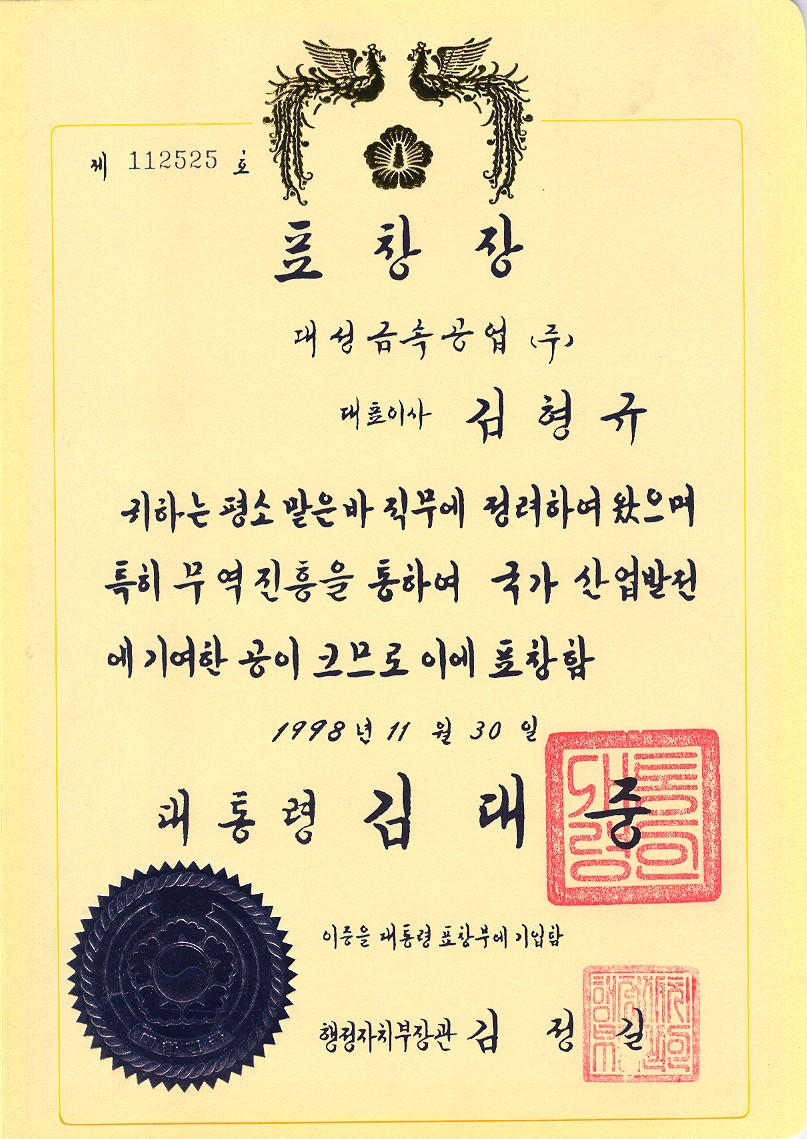 제 112525 호
표창장
대성금속공업(주)
대표이사 김형규
귀하는 평소 맡은바 직무에 정려하여 왔으며
특히 무역진흥을 통하여 국가 산업발전
에 기여한 공이 크므로 이에 표창함
1998년 11월 30일
대통령 김대중
이증을 대통령 표창부에 기입함
행정자치부장관 김정길